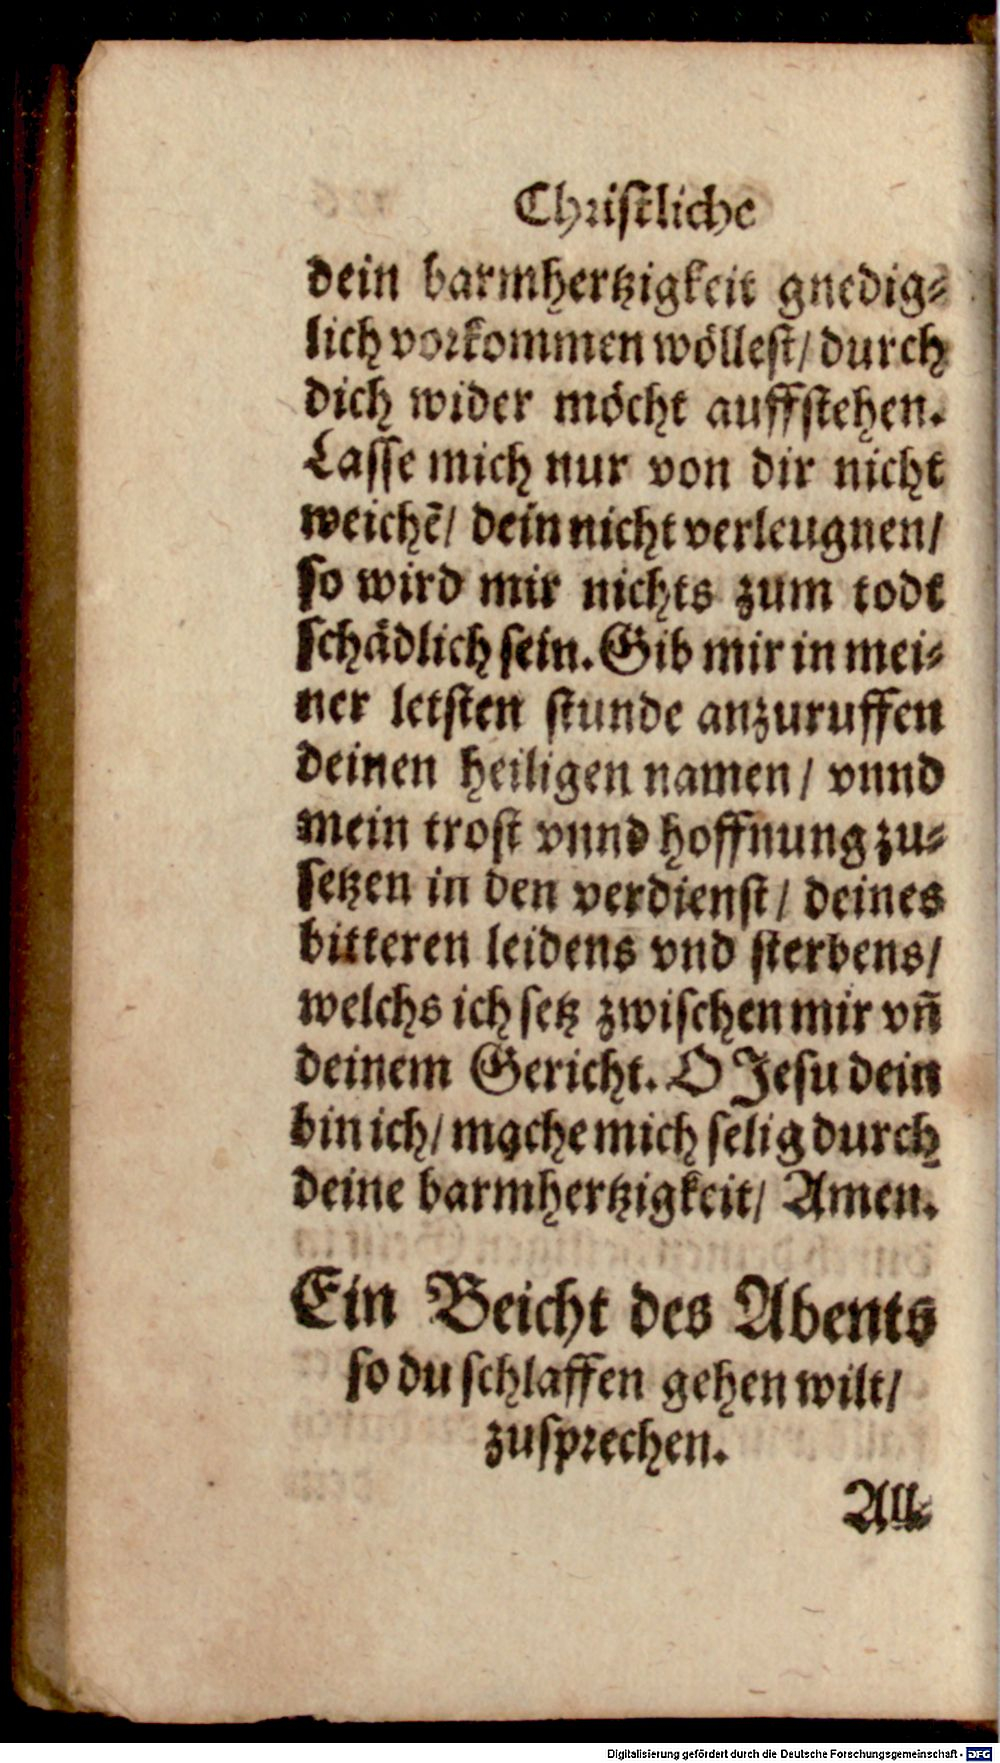 Christliche
dein barmhertzigkeit gnedig-
lich vorkommen wöllest/ durch
dich wider möcht auffstehen.
Lasse mich nur von dir nicht
weichẽ/ dein nicht verleugnen/
so wird mir nichts zum todt
schädlich sein. Gib mir in mei-
ner letsten stunde anzuruffen
deinen heiligen namen/ vnnd
mein trost vnnd hoffnung zu-
setzen in den verdienst/ deines
bitteren leidens vnd sterbens/
welchs ich setz zwischen mir vñ
deinem Gericht. O Jesu dein
bin ich/ mache mich selig durch
deine barmhertzigkeit/ Amen.
Ein Beicht des Abents
so du schlaffen gehen wilt/
zusprechen.
All-
Digitalisierung gefördert durch die Deutsche Forschungsgemeinschaft - DFG